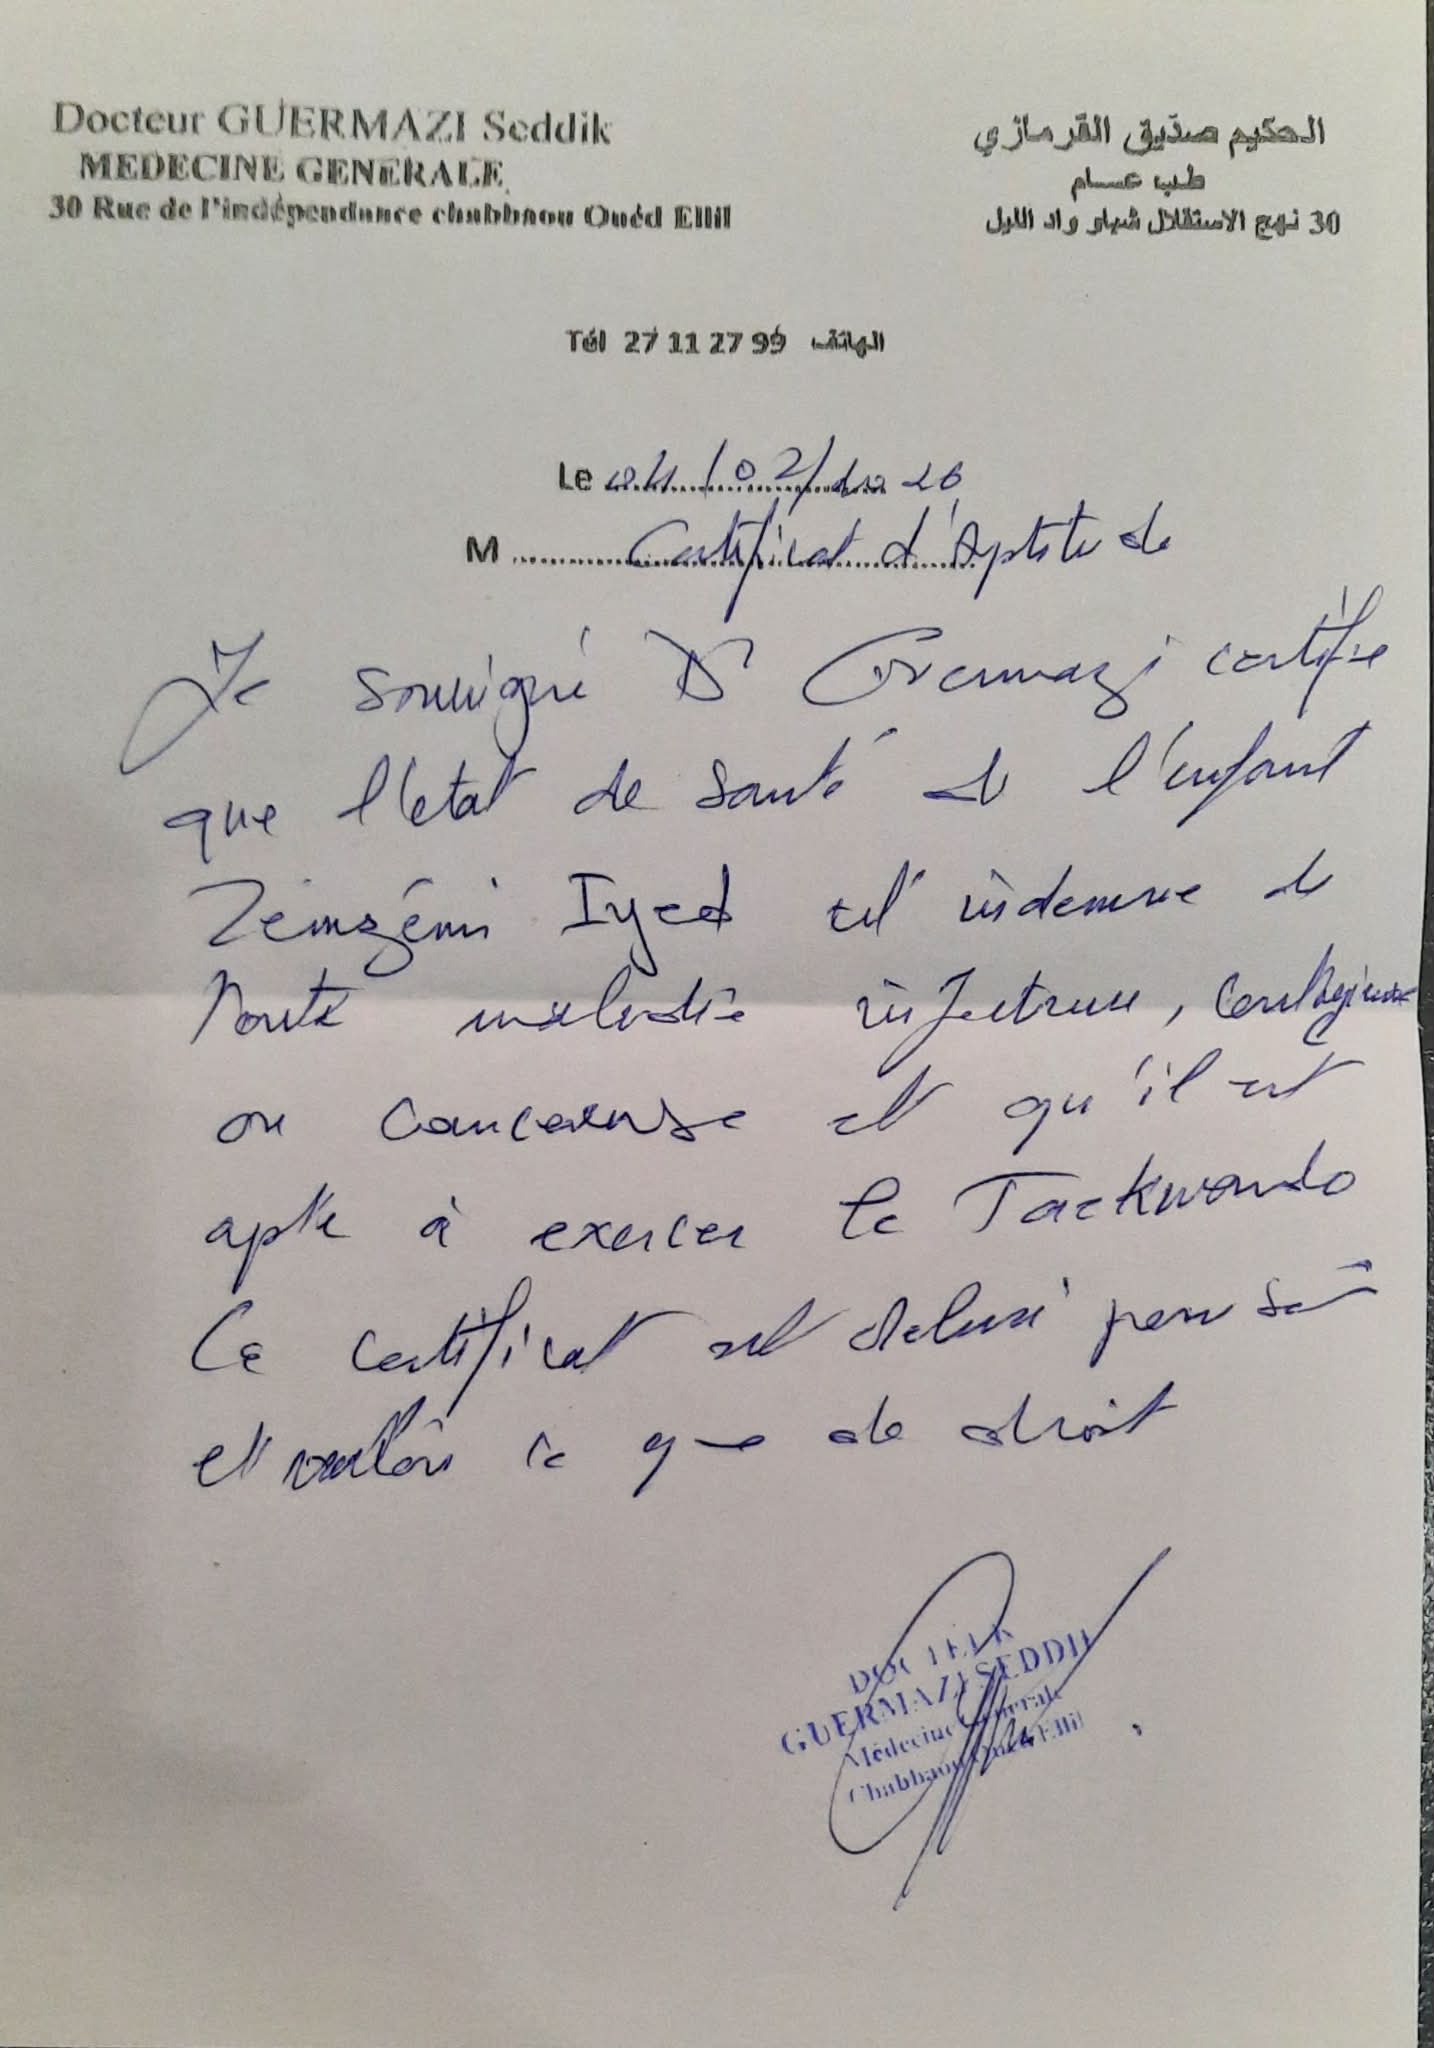 Docteur GUERMAZI Seddik
MEDECINE GENERALE
30 Rue de l'indépendance chabbaou Ouéd Ellil
الحكيم صديق القرمازي
طب عام
30 نهج الاستقلال شباو واد الليل
Tél 27 11 27 99 الهاتف
Le 04/02/2026
M Certificat d'Aptitude
Je soussigné Dr Guermazi certifie
que l'état de santé de l'enfant
Zemzémi Iyed est indemne de
toute maladie infectieuse, contagieuse
ou cancereuse et qu'il est
apte à exercer le Taekwondo
Ce certificat est delivré pour servir
et valoir ce que de droit
DOCTEUR
GUERMAZI SEDDIK
Médecine Generale
Chabbaou Oued Ellil